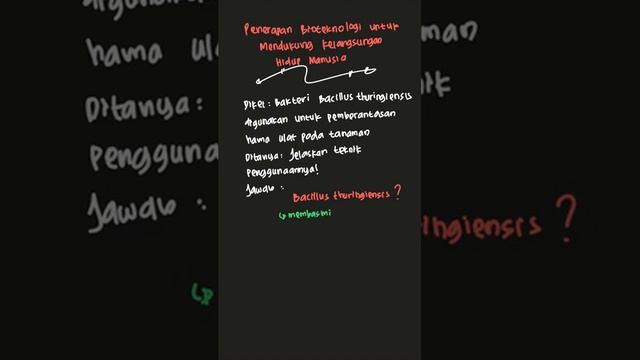 Penerapan Bioteknologi untuk
Mendukung Kelangsungan
Hidup Manusia
Diket : Bakteri Bacillus thuringiensis
digunakan untuk pemberantasan
hama ulat pada tanaman
Ditanya : Jelaskan teknik
penggunaannya!
Jawab :
Bacillus thuringiensis ?
↳ membasmi